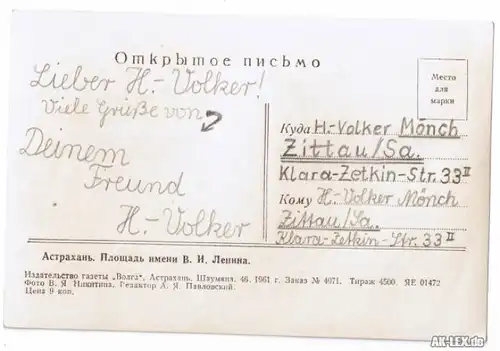 Открытое письмо
Lieber H.- Volker!
Viele Grüße von
Deinem
Freund
H.- Volker
Место
для
марки
Куда H.-Volker Mönch
Zittau/Sa.
Klara-Zetkin-Str. 33 II
Кому H.-Volker Mönch
Zittau/Sa.
Klara-Zetkin-Str. 33 II
Астрахань. Площадь имени В. И. Ленина.
Издательство газеты „Волга“, Астрахань, Шаумяна, 46. 1961 г. Заказ № 4071. Тираж 4500. ЯЕ 01472
Фото В. Я Никитина. Редактор А. Я. Павловский.
Цена 9 коп.
AK-LEX.de